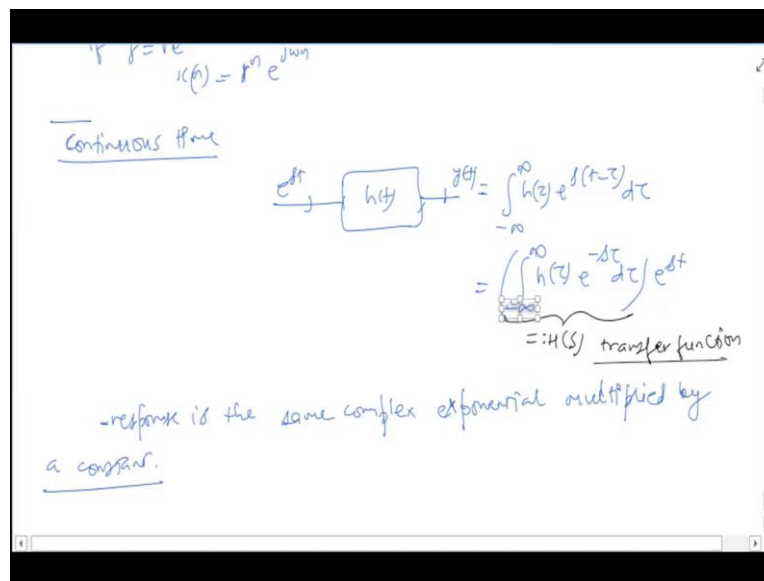 x(n) = r^n e^{jωn}
Continuous time
e^{st} h(t) y(t) = ∫_{-∞}^{∞} h(τ) e^{s(t-τ)} dτ
= (∫_{-∞}^{∞} h(τ) e^{-sτ} dτ) e^{st}
=: H(s) transfer function
-response is the same complex exponential multiplied by
a constant.